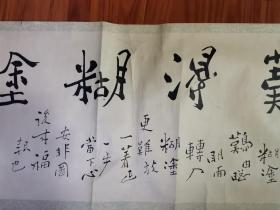 得糊塗
糊塗
難由聰
明而
轉入
糊塗
更難放
一著退
一步
當下心
安非圖
後来福
報也